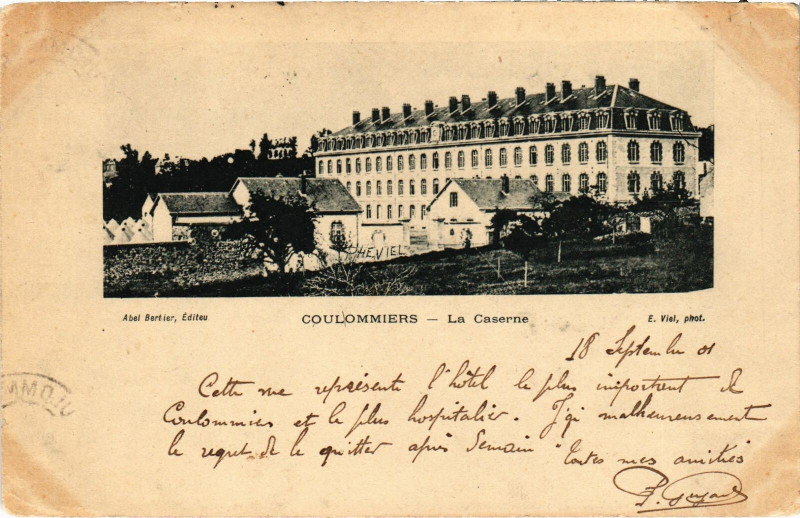 HEVIEL
Abel Bertier, Éditeu
COULOMMIERS — La Caserne
E. Viel, phot.
18 Septembre 01
Cette vue représente l'hôtel le plus important de
Coulommiers et le plus hospitalier. J'ai malheureusement
le regret de le quitter après Demain Toutes mes amitiés